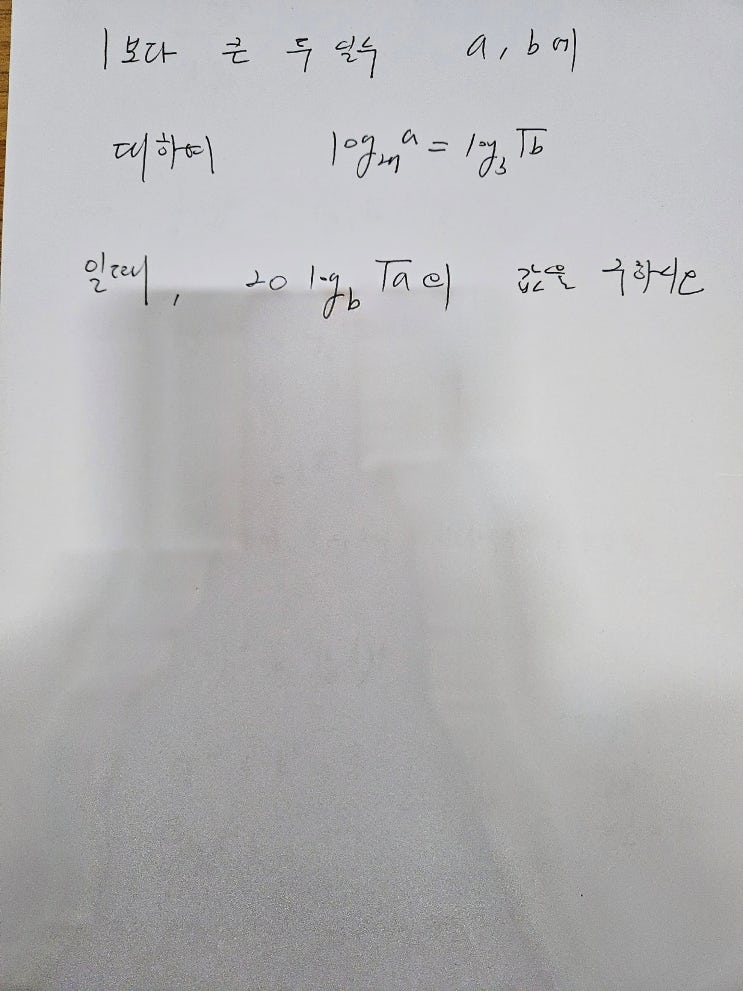 1보다 큰 두 실수 a, b에
대하여 log₂₇a = log₃√b
일때, 20 log_b √a 의 값을 구하시오